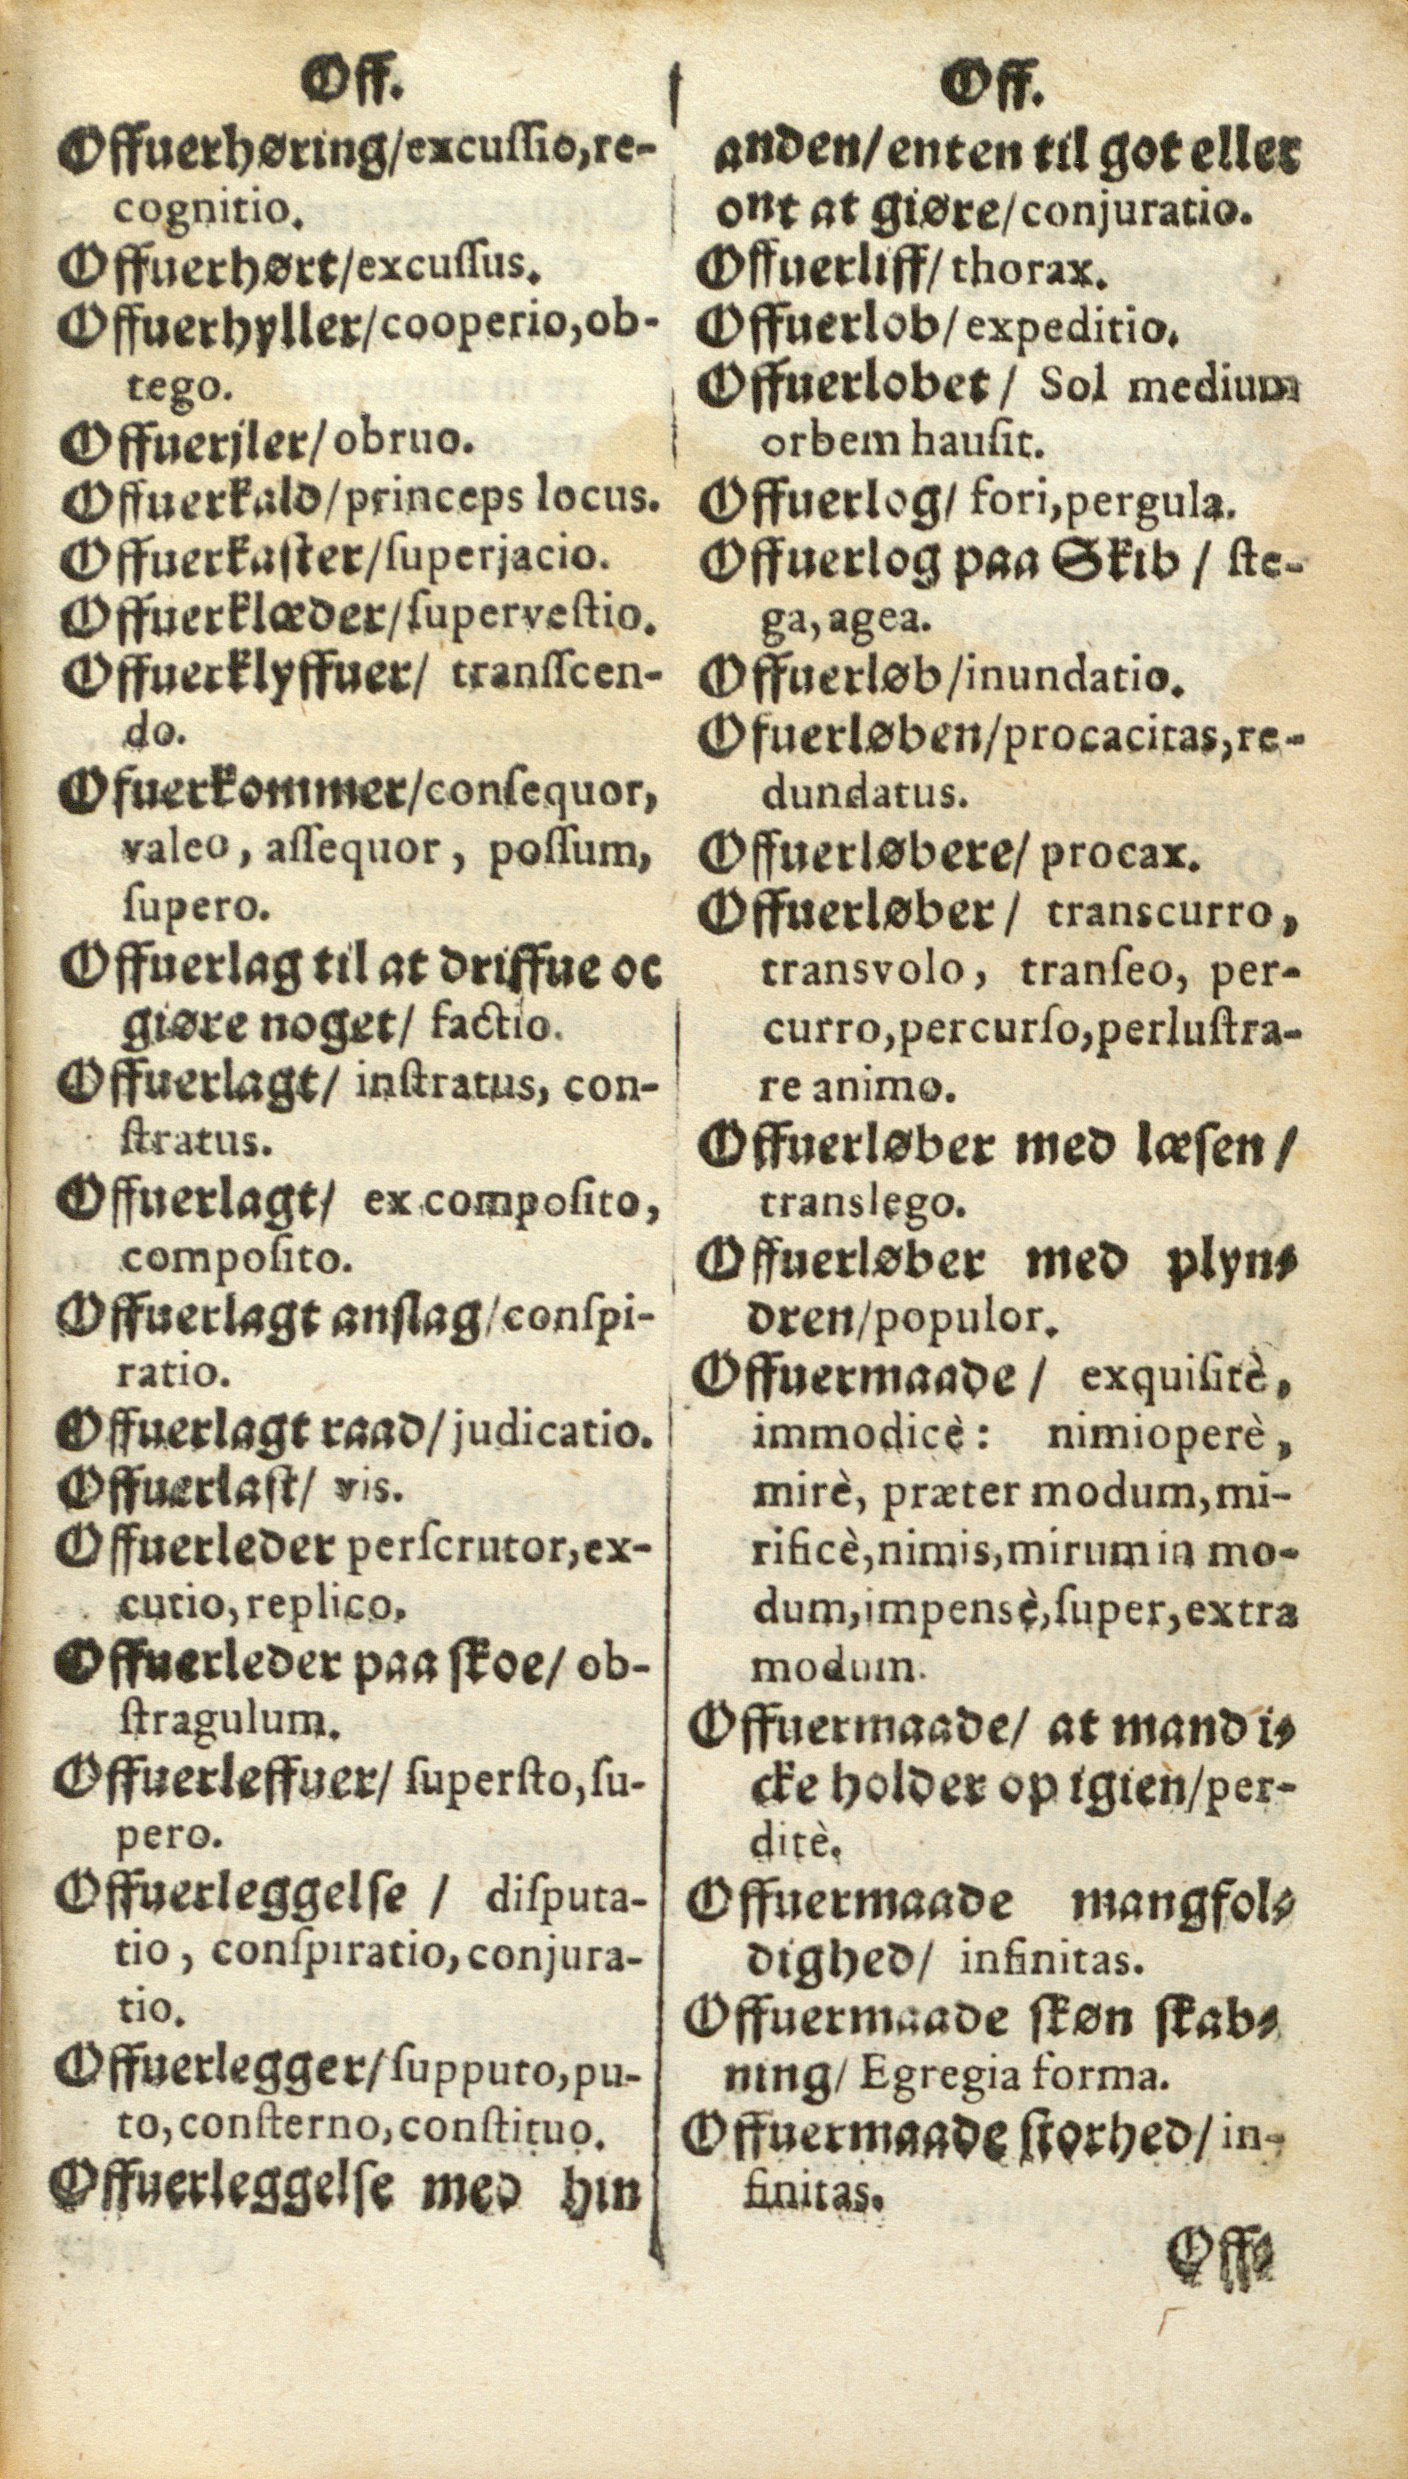 Off.
Offuerhøring/excuſſio,re-
cognitio.
Offuerhørt/excuſſus.
Offuerhyller/cooperio,ob-
tego.
Offuerjler/obruo.
Offuerkald/princeps locus.
Offuerkaſter/ſuperjacio.
Offuerklæder/ſuperveſtio.
Offuerklyffuer/ transſcen-
do.
Ofuerkommer/conſequor,
valeo, aſſequor, poſſum,
ſupero.
Offuerlag til at driffue oc
giøre noget/ factio.
Offuerlagt/ inſtratus, con-
ſtratus.
Offuerlagt/ ex compoſito,
compoſito.
Offuerlagt anſlag/conſpi-
ratio.
Offuerlagt raad/judicatio.
Offuerlaſt/ vis.
Offuerleder perſcrutor,ex-
cutio,replico.
Offuerleder paa ſkoe/ ob-
ſtragulum.
Offuerleffuer/ ſuperſto,ſu-
pero.
Offuerleggelſe / diſputa-
tio, conſpiratio,conjura-
tio.
Offuerlegger/ſupputo,pu-
to,conſterno,conſtituo.
Offuerleggelſe med hin
Off.
anden/enten til got eller
ont at giøre/conjuratio.
Offuerliff/thorax.
Offuerlob/expeditio.
Offuerlobet/ Sol medium
orbem hauſit.
Offuerlog/ fori,pergula.
Offuerlog paa Skib / ſte-
ga,agea.
Offuerløb/inundatio.
Ofuerløben/procacitas,re-
dundatus.
Offuerløbere/ procax.
Offuerløber/ transcurro,
transvolo, tranſeo, per-
curro,percurſo,perluſtra-
re animo.
Offuerløber med læſen/
translego.
Offuerløber med plyn-
dren/populor.
Offuermaade/ exquiſitè,
immodicè: nimioperè,
mirè, præter modum,mi-
rificè,nimis,mirum in mo-
dum,impensè,ſuper,extra
modum.
Offuermaade/ at mand i-
cke holder op igien/per-
ditè.
Offuermaade mangfol-
dighed/ infinitas.
Offuermaade ſkøn ſkab-
ning/ Egregia forma.
Offuermaade ſtorhed/in-
finitas.
Off-